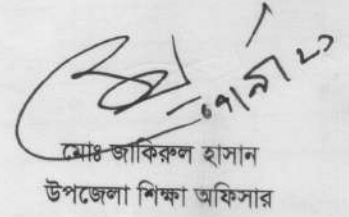 মোঃ জাকিরুল হাসান
উপজেলা শিক্ষা অফিসার